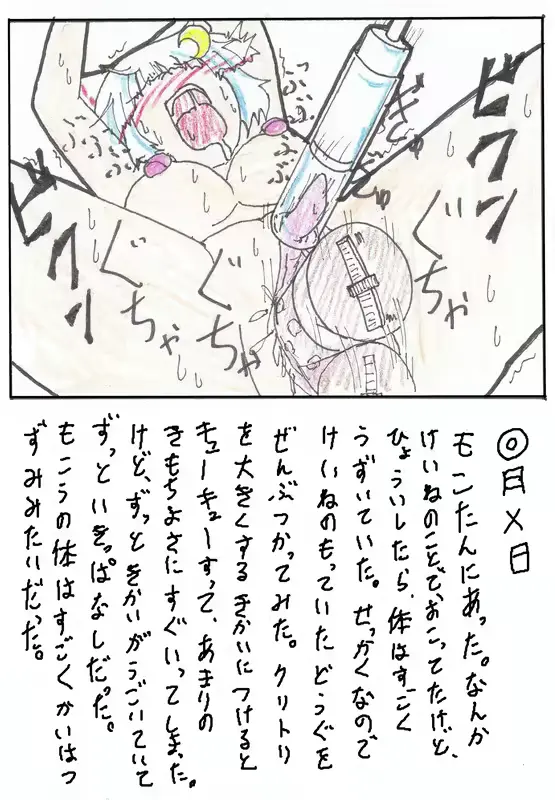 ◎月×日
もこたんにあった。なんか
けいねのことで、おこってたけど、
ひょういしたら、体はすごく
うずいていた。せっかくなので
けいねのもっていたどうぐを
ぜんぶつかってみた。クリトリ
を大きくするきかいにつけると
キューキューすって、あまりの
きもちよさにすぐいってしまった。
けど、ずっときかいがうごいていて
ずっといきっぱなしだった。
もこうの体はすごくかいはつ
ずみみたいだった。
ビクン
ビクン
ぐちゃ
ぐちゃ
ぐい
ぶぶぶ
ぶぶぶ